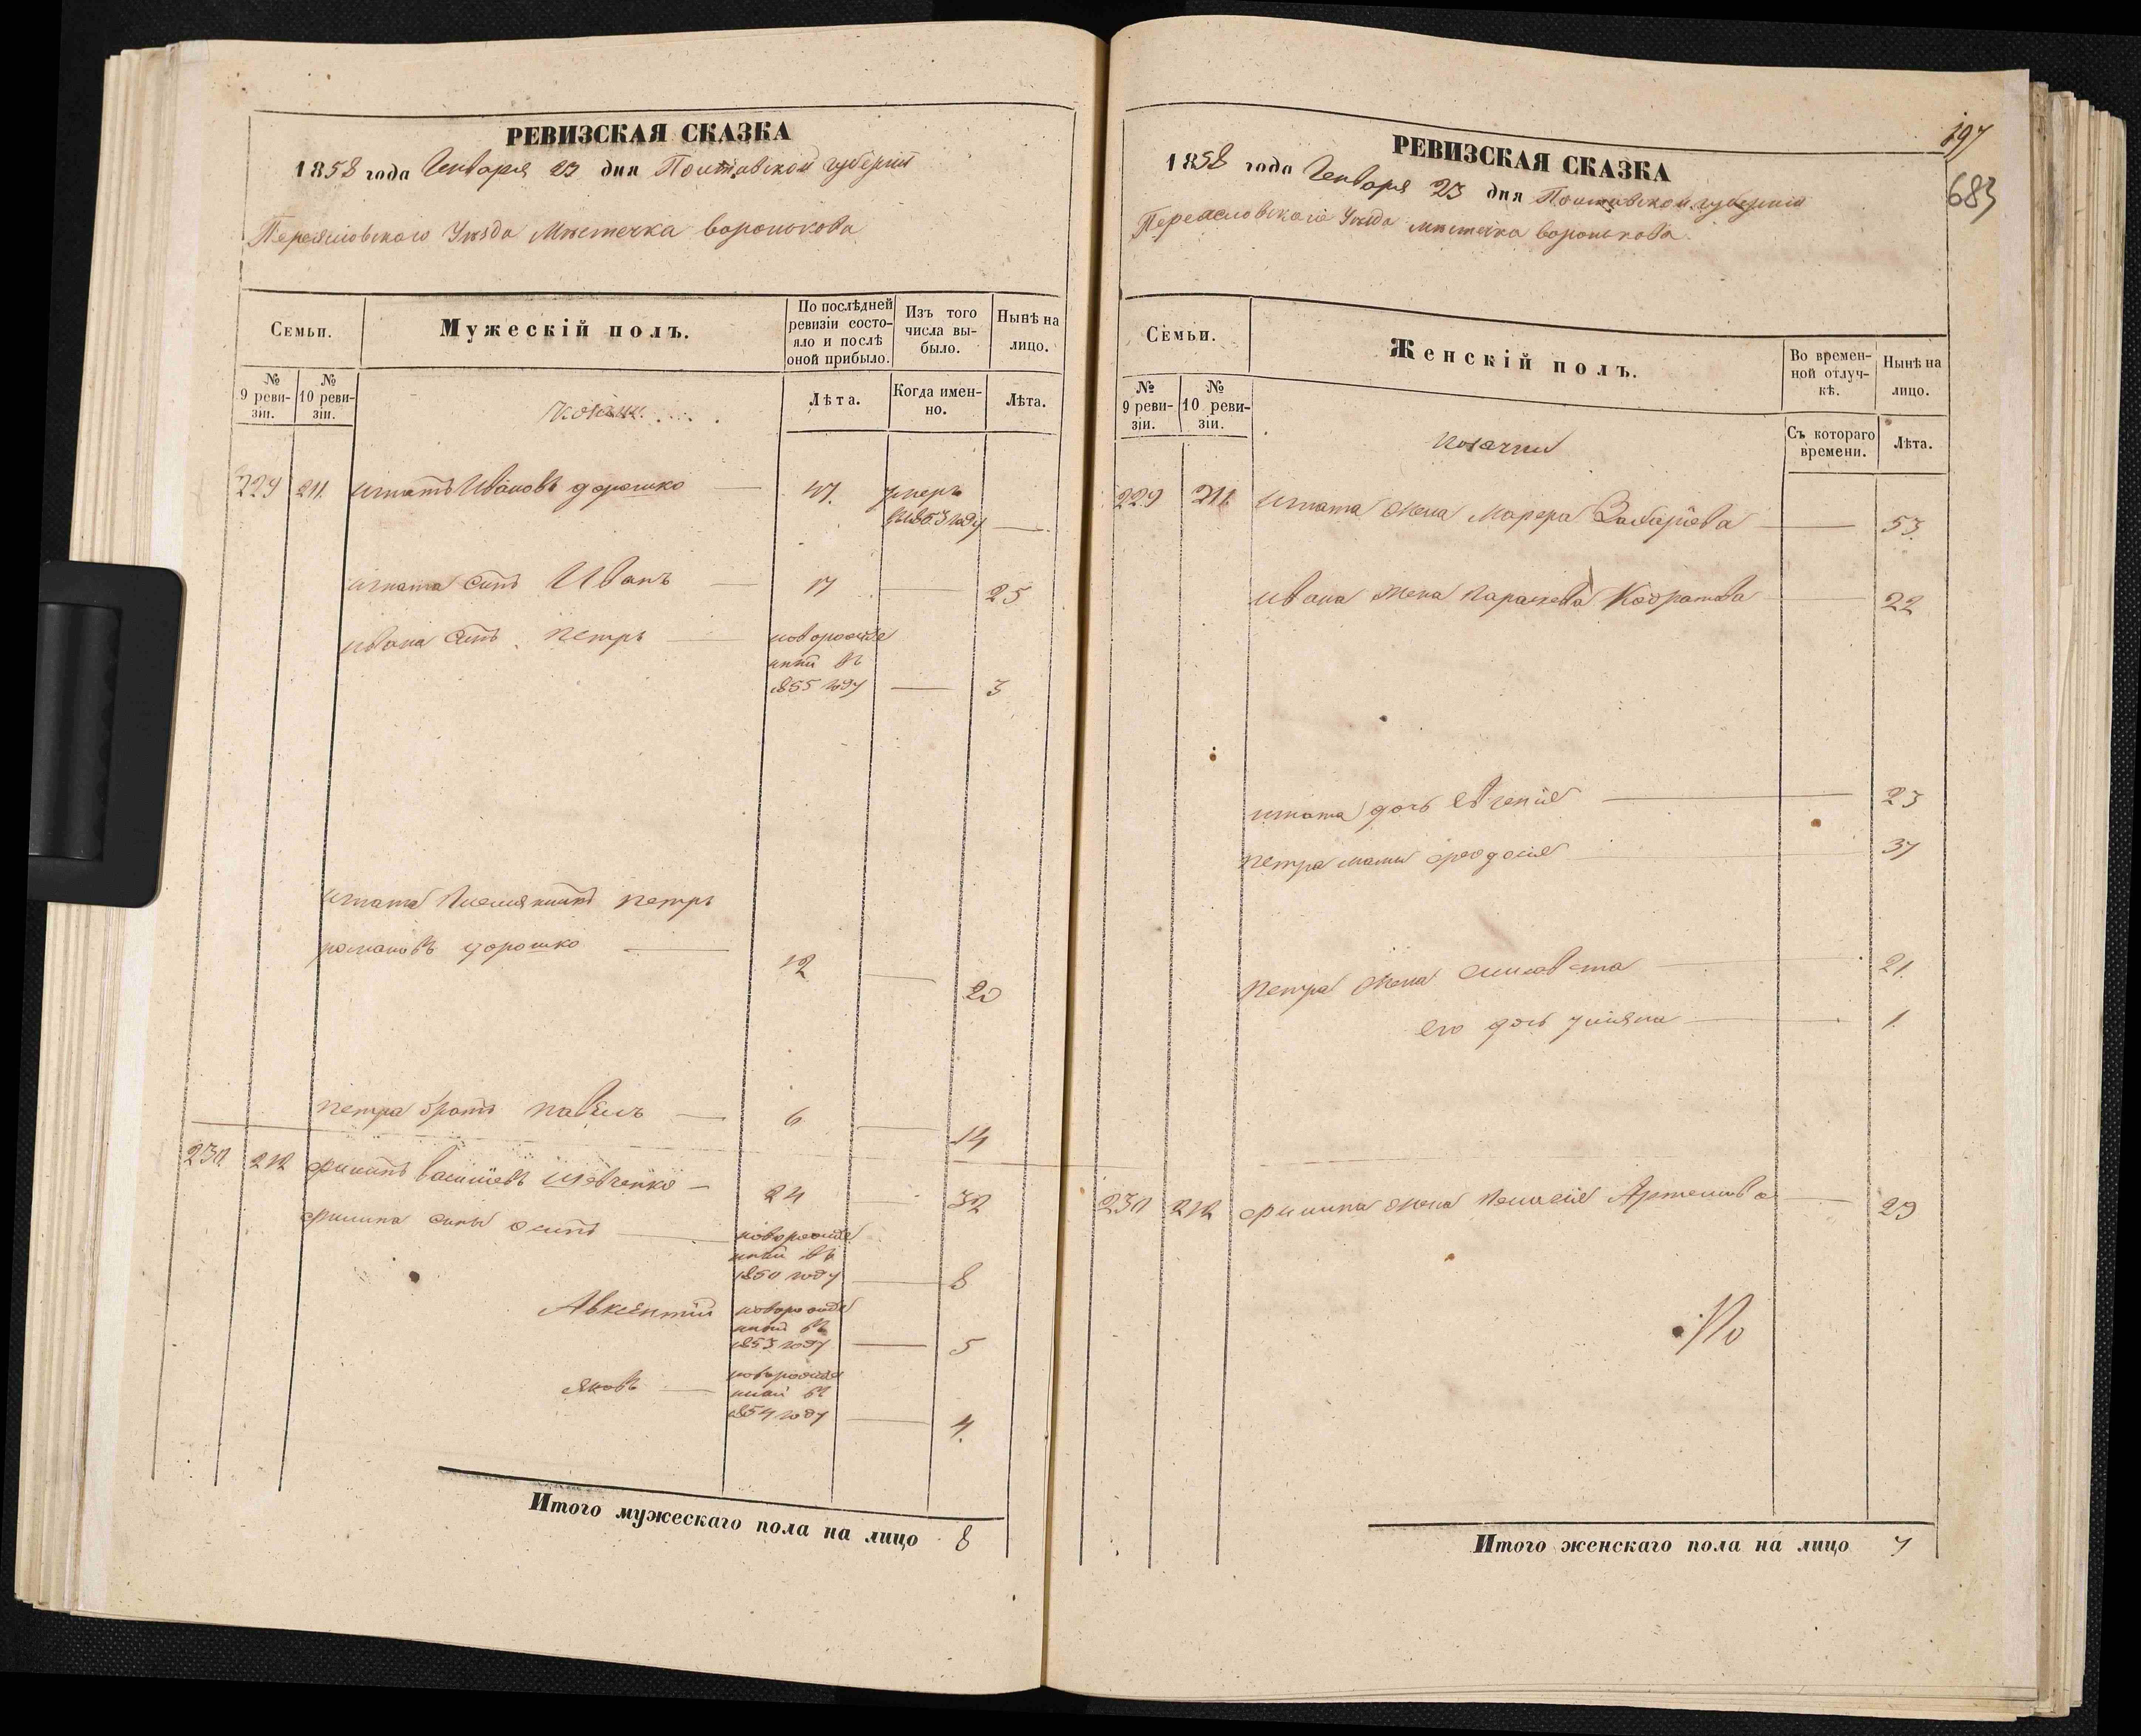 РЕВИЗСКАЯ СКАЗКА
1858 года Генваря 23 дня Полтавской губернии
Переясловского Уѣзда Мѣстечка воронькова
Семьи.
Мужескій полъ.
По послѣдней ревизіи состояло и послѣ оной прибыло.
Изъ того числа выбыло.
Нынѣ на лицо.
№ 9 ревизіи.
№ 10 ревизіи.
козаки
Лѣта.
Когда именно.
Лѣта.
229 211. игнатъ Ивановъ дорошко 47. умеръ
в 1853 году
игната сынъ Иванъ 17 25
ивана сынъ петръ новорожде
нный въ
1855 году 3
игната племянникъ петръ
романовъ дорошко 12 20
петра братъ павелъ 6 14
230 212 филипъ васильевъ шевченко 24 32
филипа сыны осипъ новорожде
нный въ
1850 году 8
Авксентій новорожде
нный въ
1853 году 5
яковъ новорожде
нный въ
1854 году 4.
Итого мужескаго пола на лицо 8
197
683
РЕВИЗСКАЯ СКАЗКА
1858 года Генваря 23 дня Полтавской губернии
Переасловского Уѣзда мѣстечка воронькова.
Семьи.
Женскій полъ.
Во временной отлучкѣ.
Нынѣ на лицо.
№ 9 ревизіи.
№ 10 ревизіи.
козачки
Съ котораго времени.
Лѣта.
229 211. игната жена Марфа Захарієва 53.
ивана жена параскева Кодратова 22
игната дочь евгенія 23
петра мать феодосія 37
петра жена елисавета 21.
его дочь уліяна 1.
230 212 филипа жена пелагея Артемова 29
По
Итого женскаго пола на лицо 7